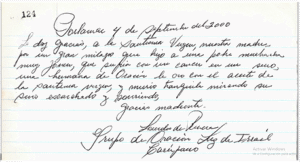 124
4 de Septiembre del 2000
doy Gracias, a la Santisima Virgen, nuestra madre
por un Gran milagro que hizo a una pobre muchacha
muy joven, que sufria con un cancer en un seno,
una hermana de Oración le oro con el aceite de
la santisima virgen, y murio tranquila mirando su
seno escarchado y sonriendo,
Gracias madrecita.
Grupo de Oración Rey de Israel